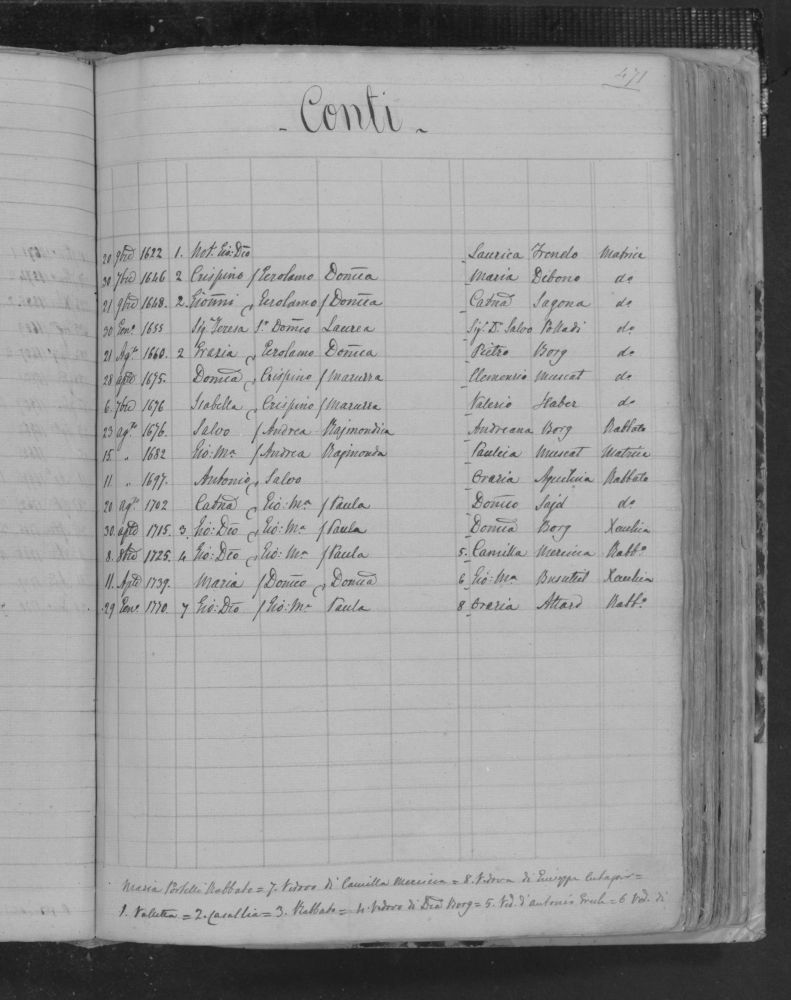 471
- Conti -
20 9bre 1622 1. Not. Gio: Dco Laurica Trondo Matrice
30 7bre 1646 2 Crispino / Gerolamo Domca Maria Debono do
21 9bre 1648. 2. Gionni Gerolamo / Domca Catna Sagona do
30 Genn. 1655 Sig. Teresa Sr Domco Laurea Sig. Dr Salvo do
21 Agto 1660. 2 Grazia Gerolamo Domca Pietro Borg do
28 aple 1675. Domca Crispino / Maruzza Clemenzio Muscat do
6. 7bre 1676 Isabella Crispino / Maruzza Valerio Haber do
23 agto 1676. Salvo / Andrea Rajmondica Andreana Borg Rabbato
15 " 1682 Gio: Ma / Andrea Rajmonda Paulcia Muscat Matrice
11 " 1697. Antonio Salvo Grazia Agustina Rabbato
20 agto 1702 Catna Gio: Ma / Paula Domco Sajd do
30 aple 1715. 3. Gio: Dco Gio: Ma / Paula Domca Borg Xeulia
8. 8bre 1725. 4 Gio: Dco Gio: Ma / Paula 5. Camilla Mercieca Rabbo
11. Aple 1739. Maria / Domco Domca 6 Gio: Ma Busuttil Xeulia
29 Genn. 1770. 7 Gio: Dco / Gio: Ma Paula 8 Grazia Attard Rabbo
Maria Portelli Rabbato = 7. Vedovo di Camilla Mercieca = 8. Vedova di Giuseppe =
1. Valletta = 2. = 3. Rabbato = 4. Vedovo di Dca Borg = 5. Ved. d'Antonio = 6 Ved. di